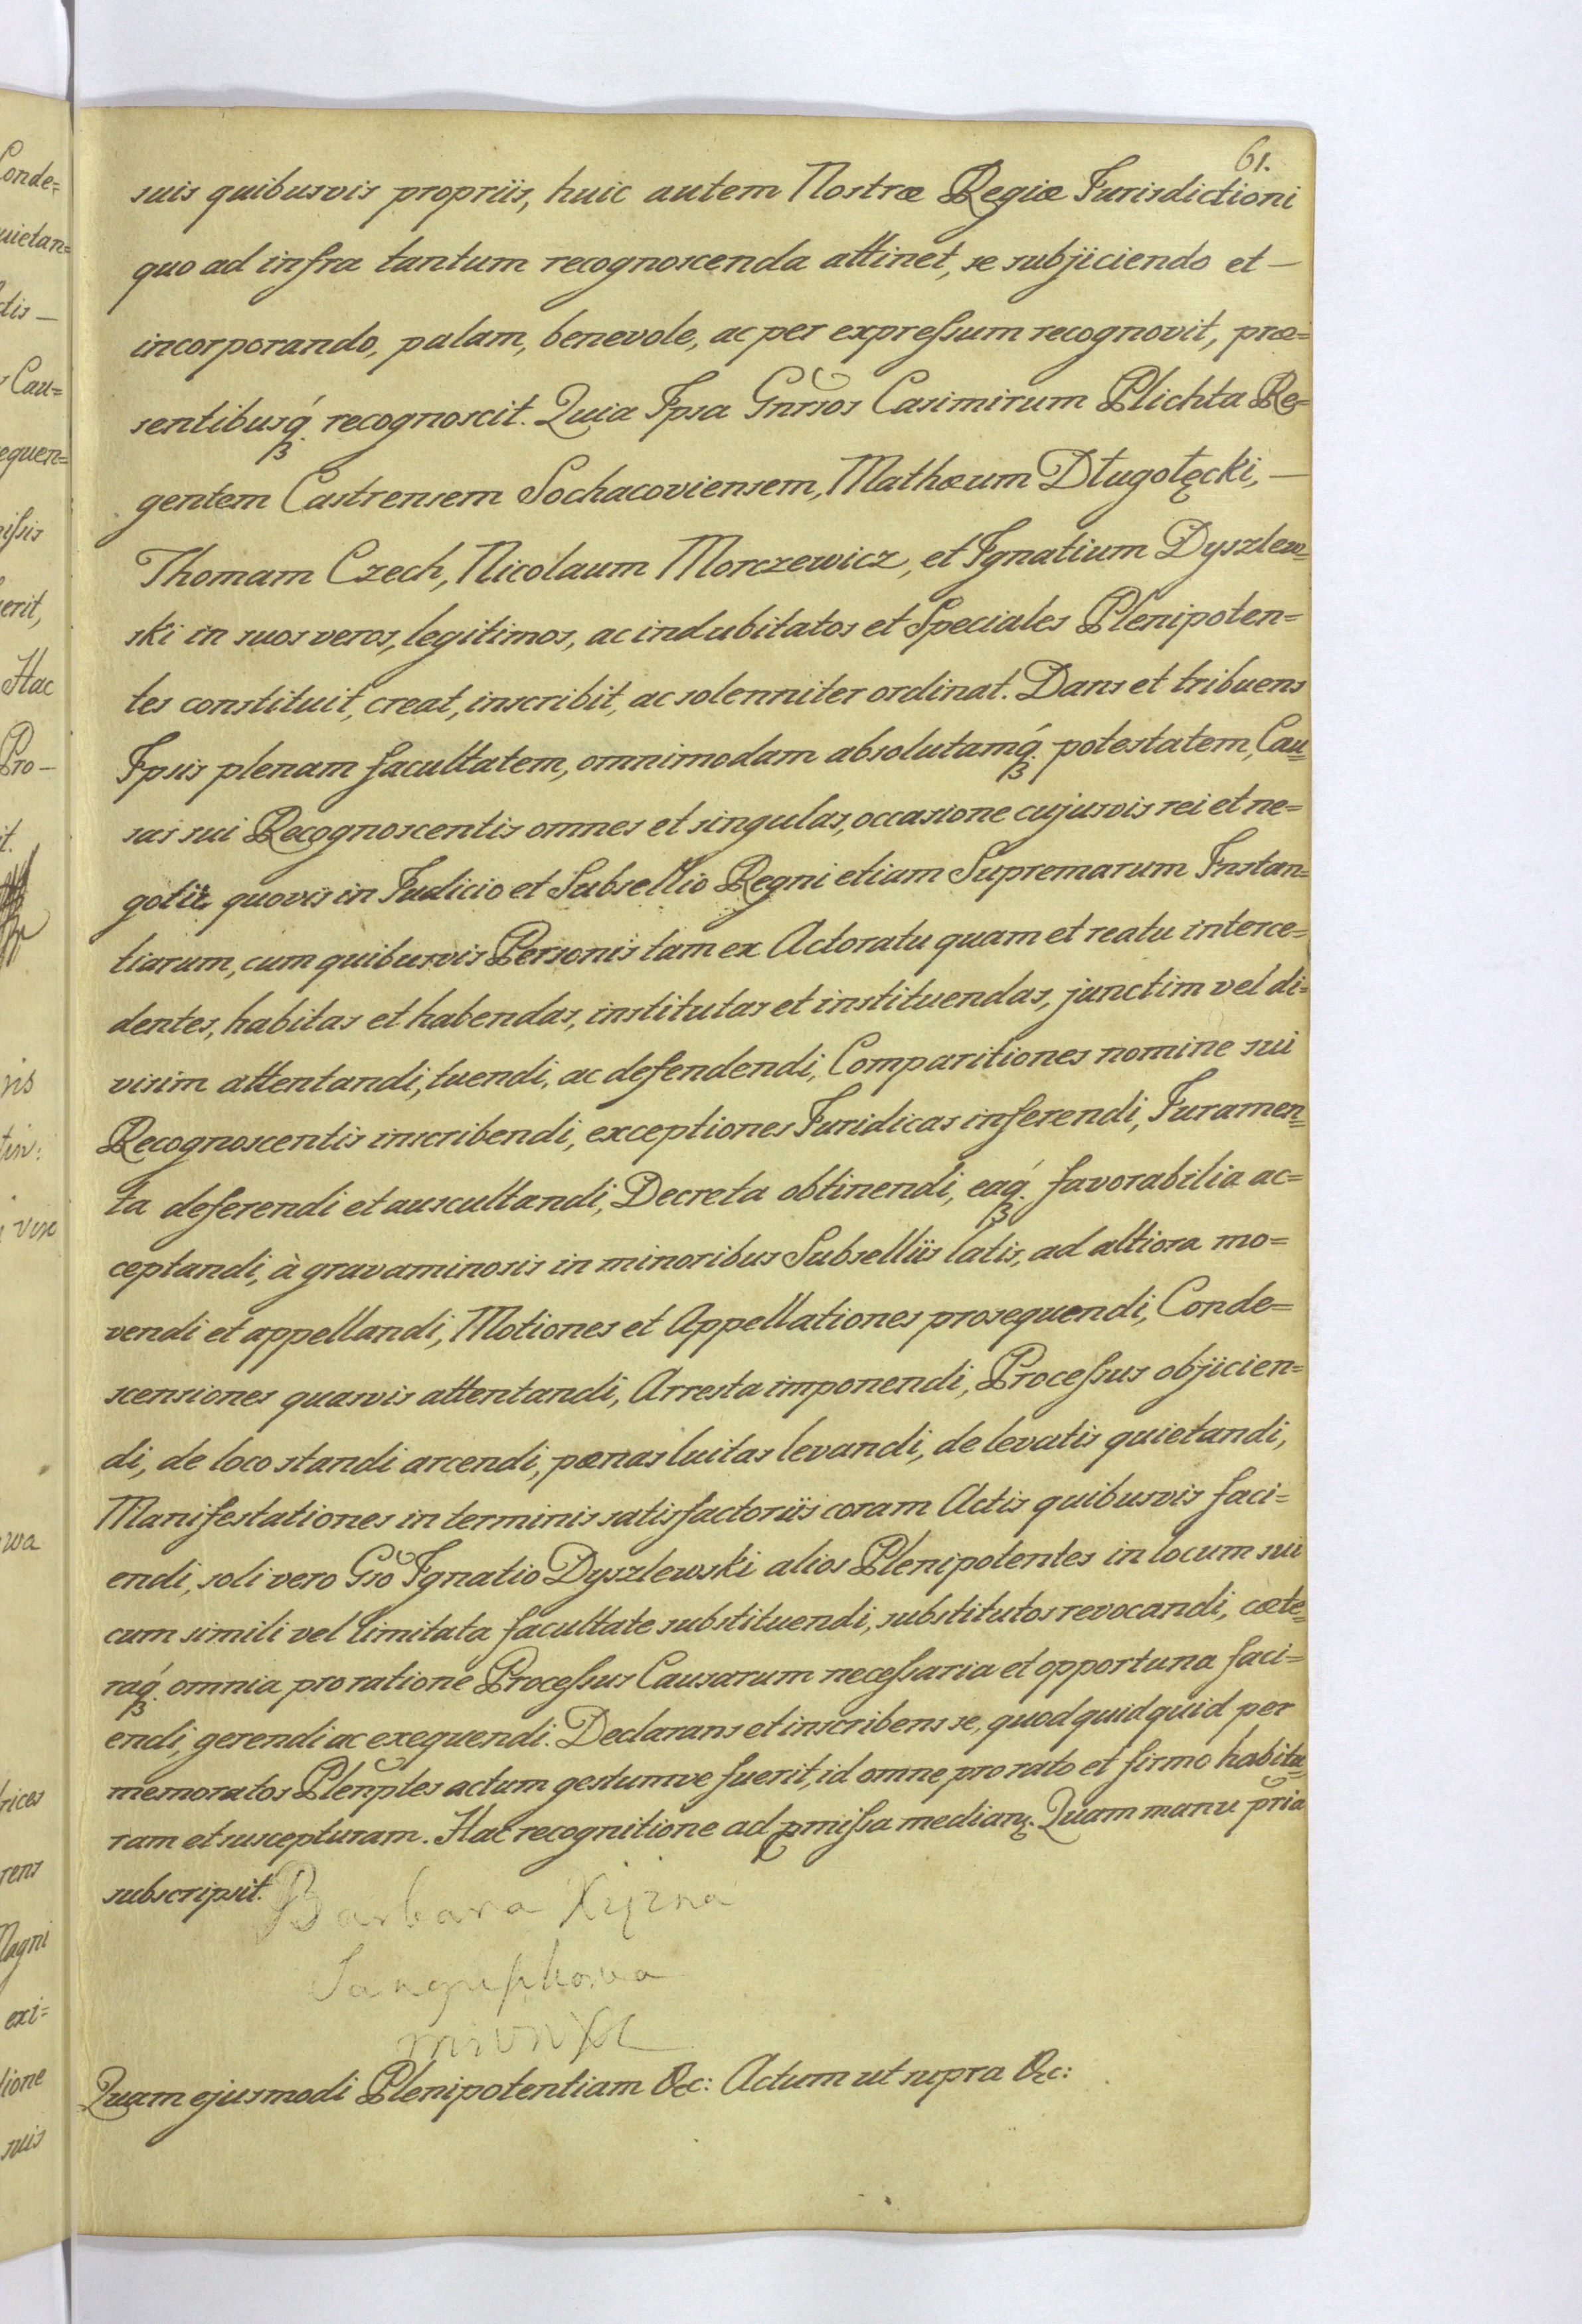 61.
suis quibusvis propriis, huic autem Nostræ Regiæ Jurisdictioni
quo ad infra tantum recognoscenda attinet, se subjiciendo et —
incorporando, palam, benevole, ac per expreſsum recognovit, præ=
sentibusq́ꝫ recognoscit. Quia Ipsa Gnrsos Casimirum Plichta Re=
gentem Castrensem Sochacoviensem, Mathæum Długołęcki, —
Thomam Czech, Nicolaum Morczewicz, et Ignatium Dyszlew=
ski in suos veros, legitimos, ac indubitatos et Speciales Plenipoten=
tes constituit, creat, inscribit, ac solenniter ordinat. Dans et tribuens
Ipsis plenam facultatem, omnimodam absolutamq́ꝫ potestatem, Cau=
sas sui Recognoscentis omnes et singulas, occasione cujusvis rei et ne=
gotii quovis in Judicio et Subsellio Regni etiam Supremarum Instan=
tiarum, cum quibusvis Personis tam ex Actoratu quam et reatu interce=
dentes, habitas et habendas, institutas et instituendas, junctim vel di=
visim attentandi, tuendi, ac defendendi, Comparitiones nomine sui
Recognoscentis inscribendi, exceptiones Juridicas inferendi, Juramen=
ta deferendi et auscultandi, Decreta obtinendi, eaq́ꝫ favorabilia ac=
ceptandi, à gravaminosis in minoribus Subselliis latis, ad altiora mo=
vendi et appellandi, Motiones et Appellationes prosequendi, Conde=
scensiones quasvis attentandi, Arresta imponendi, Proceſsus objicien=
di, de loco standi arcendi, pœnas luitas levandi, de levatis quietandi,
Manifestationes in terminis satisfactoriis coram Actis quibusvis faci=
endi, soli vero Gso Ignatio Dyszlewski alios Plenipotentes in locum sui
cum simili vel limitata facultate substituendi, substitutos revocandi, cæte=
raq́ꝫ omnia pro ratione Proceſsus Causarum neceſsaria et opportuna faci=
endi, gerendi ac exequendi. Declarans et inscribens se, quod quidquid per
memoratos Plenptes actum gestumve fuerit, id omne pro rato et firmo habitu=
ram et suscepturam. Hac recognitione ad pmiſsa medianꝫ. Quam manu pria
subscripsit.
Barbara Xiężna
Sanguszkowa
mrwXL
Quam ejusmodi Plenipotentiam &c: Actum ut supra &c: